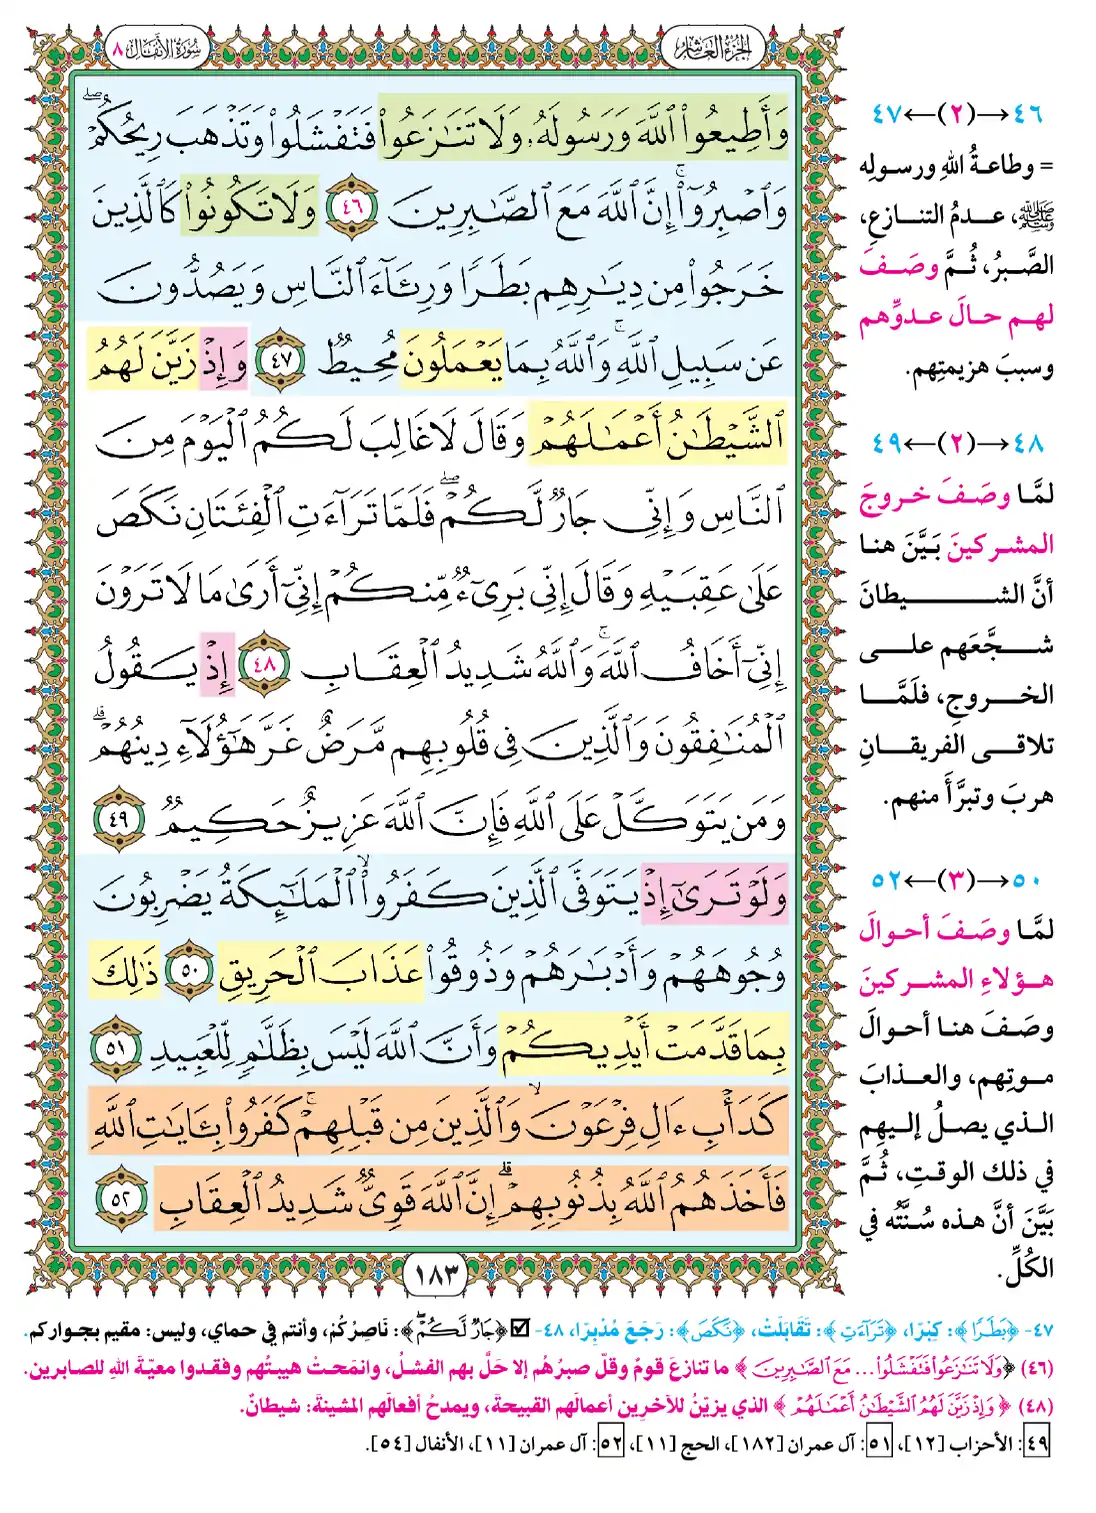 الجزء العاشر
سورة الأنفال ٨
وَأَطِيعُوا۟ ٱللَّهَ وَرَسُولَهُۥ وَلَا تَنَـٰزَعُوا۟ فَتَفْشَلُوا۟ وَتَذْهَبَ رِيحُكُمْ ۖ
وَٱصْبِرُوٓا۟ ۚ إِنَّ ٱللَّهَ مَعَ ٱلصَّـٰبِرِينَ ٤٦ وَلَا تَكُونُوا۟ كَٱلَّذِينَ
خَرَجُوا۟ مِن دِيَـٰرِهِم بَطَرًا وَرِئَآءَ ٱلنَّاسِ وَيَصُدُّونَ
عَن سَبِيلِ ٱللَّهِ ۚ وَٱللَّهُ بِمَا يَعْمَلُونَ مُحِيطٌ ٤٧ وَإِذْ زَيَّنَ لَهُمُ
ٱلشَّيْطَـٰنُ أَعْمَـٰلَهُمْ وَقَالَ لَا غَالِبَ لَكُمُ ٱلْيَوْمَ مِنَ
ٱلنَّاسِ وَإِنِّى جَارٌ لَّكُمْ ۖ فَلَمَّا تَرَآءَتِ ٱلْفِئَتَانِ نَكَصَ
عَلَىٰ عَقِبَيْهِ وَقَالَ إِنِّى بَرِىٓءٌ مِّنكُمْ إِنِّىٓ أَرَىٰ مَا لَا تَرَوْنَ
إِنِّىٓ أَخَافُ ٱللَّهَ ۚ وَٱللَّهُ شَدِيدُ ٱلْعِقَابِ ٤٨ إِذْ يَقُولُ
ٱلْمُنَـٰفِقُونَ وَٱلَّذِينَ فِى قُلُوبِهِم مَّرَضٌ غَرَّ هَـٰٓؤُلَآءِ دِينُهُمْ ۗ
وَمَن يَتَوَكَّلْ عَلَى ٱللَّهِ فَإِنَّ ٱللَّهَ عَزِيزٌ حَكِيمٌ ٤٩
وَلَوْ تَرَىٰٓ إِذْ يَتَوَفَّى ٱلَّذِينَ كَفَرُوا۟ ۙ ٱلْمَلَـٰٓئِكَةُ يَضْرِبُونَ
وُجُوهَهُمْ وَأَدْبَـٰرَهُمْ وَذُوقُوا۟ عَذَابَ ٱلْحَرِيقِ ٥٠ ذَٰلِكَ
بِمَا قَدَّمَتْ أَيْدِيكُمْ وَأَنَّ ٱللَّهَ لَيْسَ بِظَلَّـٰمٍ لِّلْعَبِيدِ ٥١
كَدَأْبِ ءَالِ فِرْعَوْنَ ۙ وَٱلَّذِينَ مِن قَبْلِهِمْ ۚ كَفَرُوا۟ بِـَٔايَـٰتِ ٱللَّهِ
فَأَخَذَهُمُ ٱللَّهُ بِذُنُوبِهِمْ ۗ إِنَّ ٱللَّهَ قَوِىٌّ شَدِيدُ ٱلْعِقَابِ ٥٢
١٨٣
٤٦→(٢)←٤٧
= وطاعةُ اللهِ ورسولِه
ﷺ، عدمُ التنازعِ،
الصَّبرُ، ثُمَّ وصَفَ
لهم حالَ عدوِّهم
وسببَ هزيمتِهم.
٤٨→(٢)←٤٩
لمَّا وصَفَ خروجَ
المشركينَ بَيَّنَ هنا
أنَّ الشيطانَ
شجَّعَهم على
الخروجِ، فلَمَّا
تلاقى الفريقانِ
هربَ وتبرَّأَ منهم.
٥٠→(٣)←٥٢
لمَّا وصَفَ أحوالَ
هؤلاءِ المشركينَ
وصَفَ هنا أحوالَ
موتِهم، والعذابَ
الذي يصلُ إليهِم
في ذلك الوقتِ، ثُمَّ
بَيَّنَ أنَّ هذه سُنَّتُه في
الكُلِّ.
٤٧- ﴿بَطَرًا﴾: كِبْرًا، ﴿تَرَآءَتِ﴾: تَقَابَلَتْ، ﴿نَكَصَ﴾: رَجَعَ مُدْبِرًا، ٤٨- ☑ ﴿جَارٌ لَّكُمْ ۖ﴾: نَاصِرُكُمْ، وأنتم في حماي، وليس: مقيم بجواركم.
(٤٦) ﴿وَلَا تَنَـٰزَعُوا۟ فَتَفْشَلُوا۟ ... مَعَ ٱلصَّـٰبِرِينَ﴾ ما تنازعَ قومٌ وقلّ صبرُهُم إلا حَلَّ بهم الفشلُ، وانمَحتْ هيبتُهم وفقدوا معيّةَ اللهِ للصابرين.
(٤٨) ﴿وَإِذْ زَيَّنَ لَهُمُ ٱلشَّيْطَـٰنُ أَعْمَـٰلَهُمْ﴾ الذي يزيّنُ للآخرِين أعمالَهم القبيحةَ، ويمدحُ أفعالَهم المشينةَ: شيطانٌ.
٤٩: الأحزاب [١٢]، ٥١: آل عمران [١٨٢]، الحج [١١]، ٥٢: آل عمران [١١]، الأنفال [٥٤].